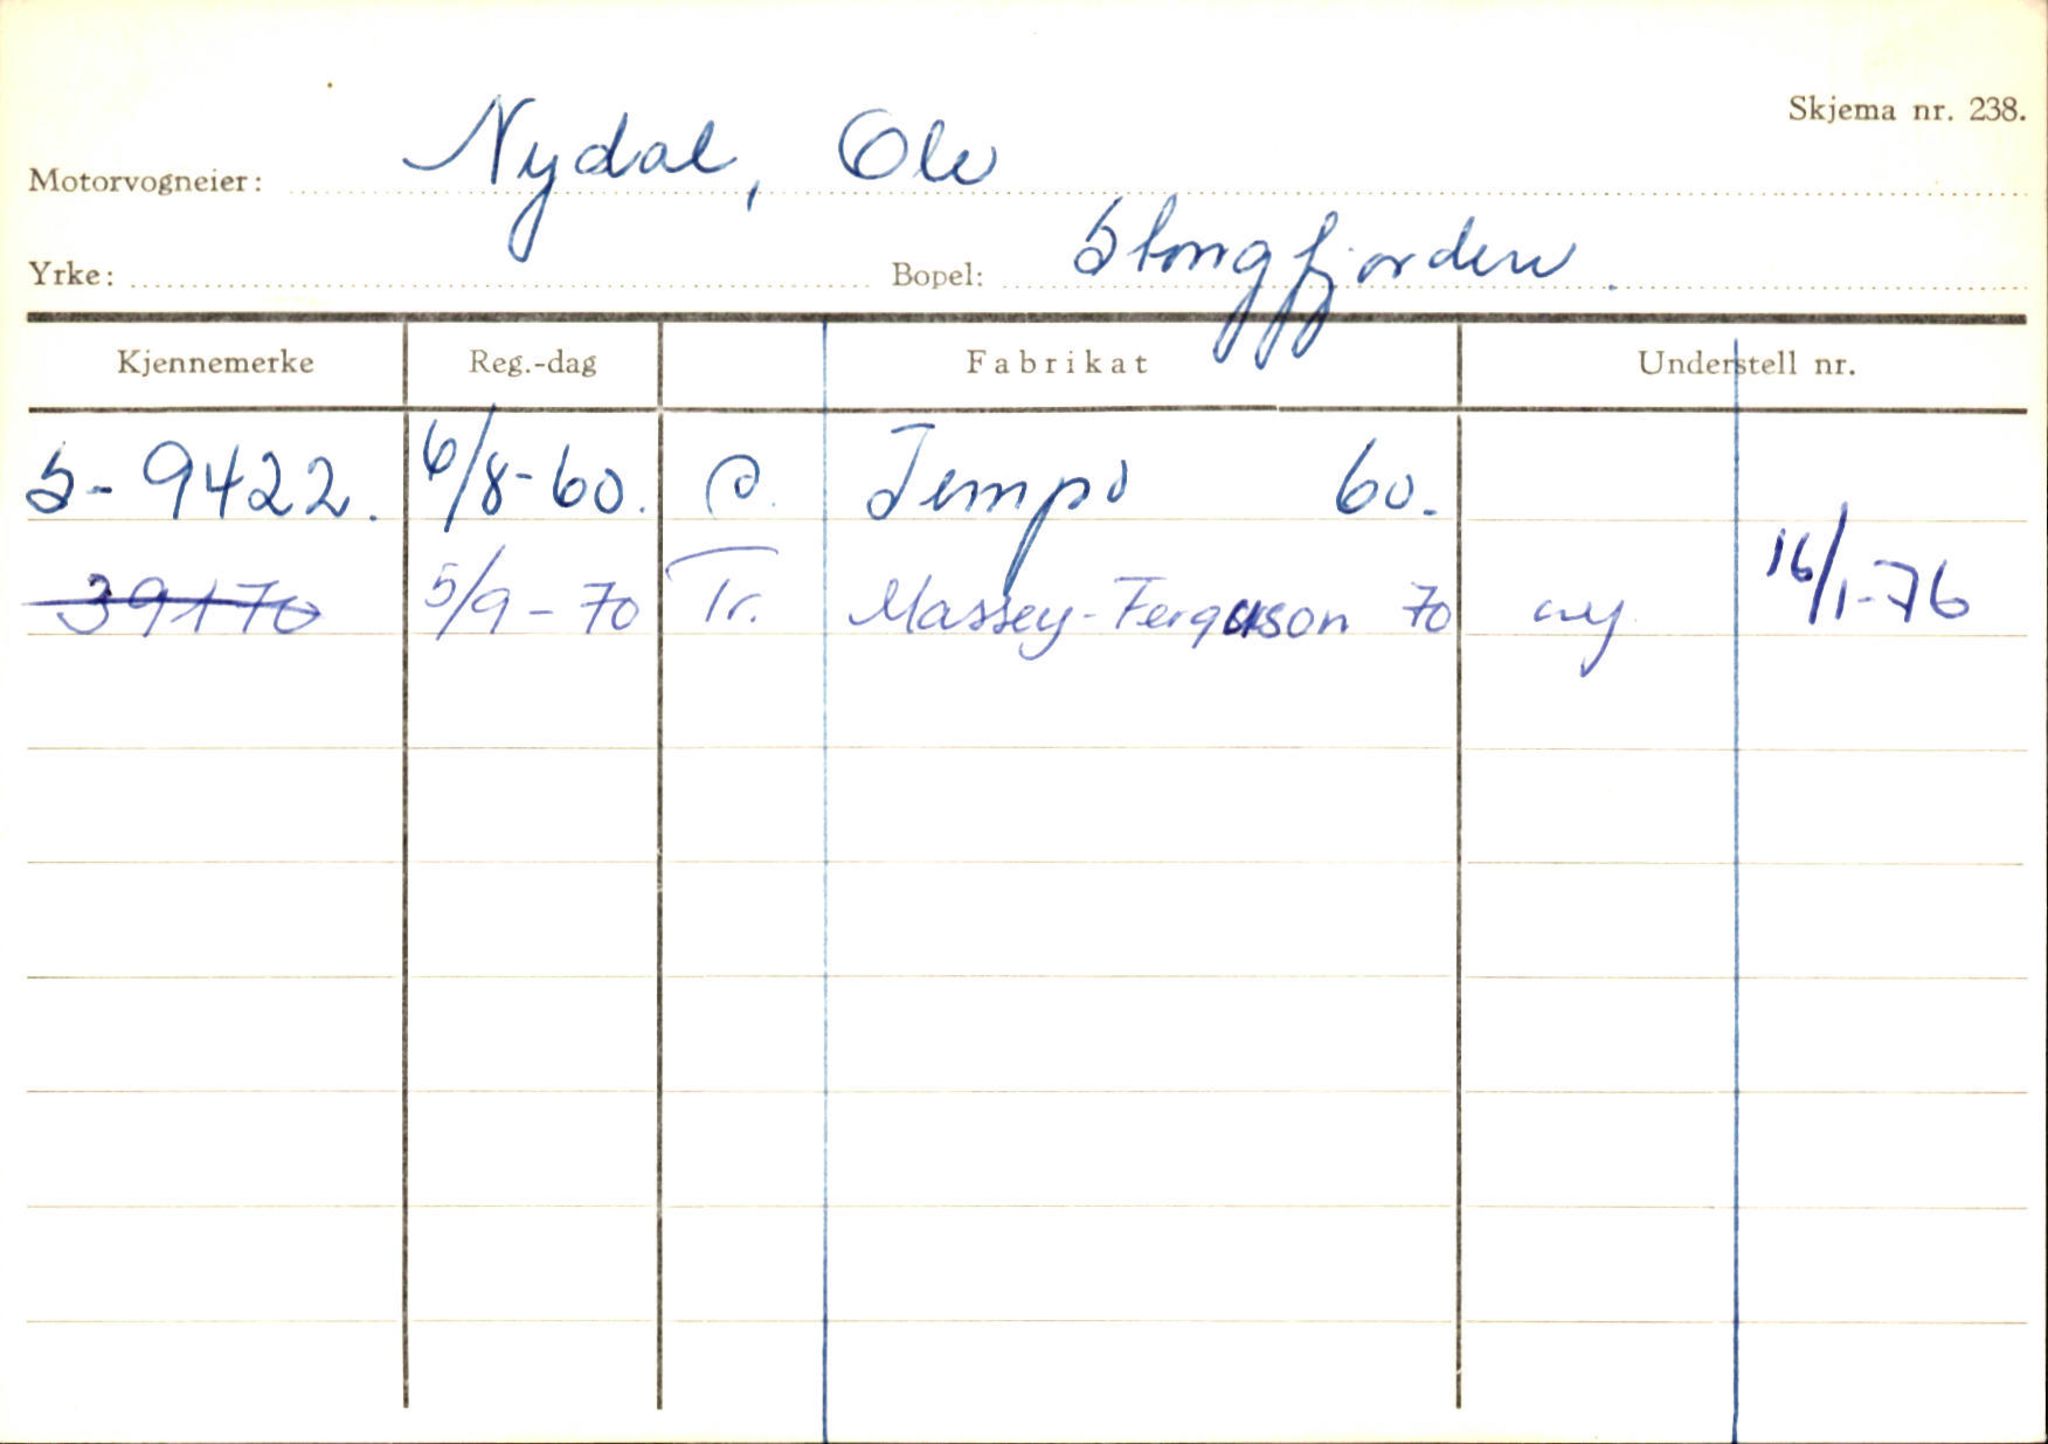 Skjema nr. 238.
Motorvogneier: Nydal, Ole
Yrke: Bopel: Stongfjorden.
Kjennemerke Reg.-dag Fabrikat Understell nr.
S-9422. 6/8-60. P. Tempo 60.
39170 5/9-70 Tr. Massey-Ferguson 70 ny 16/1-76